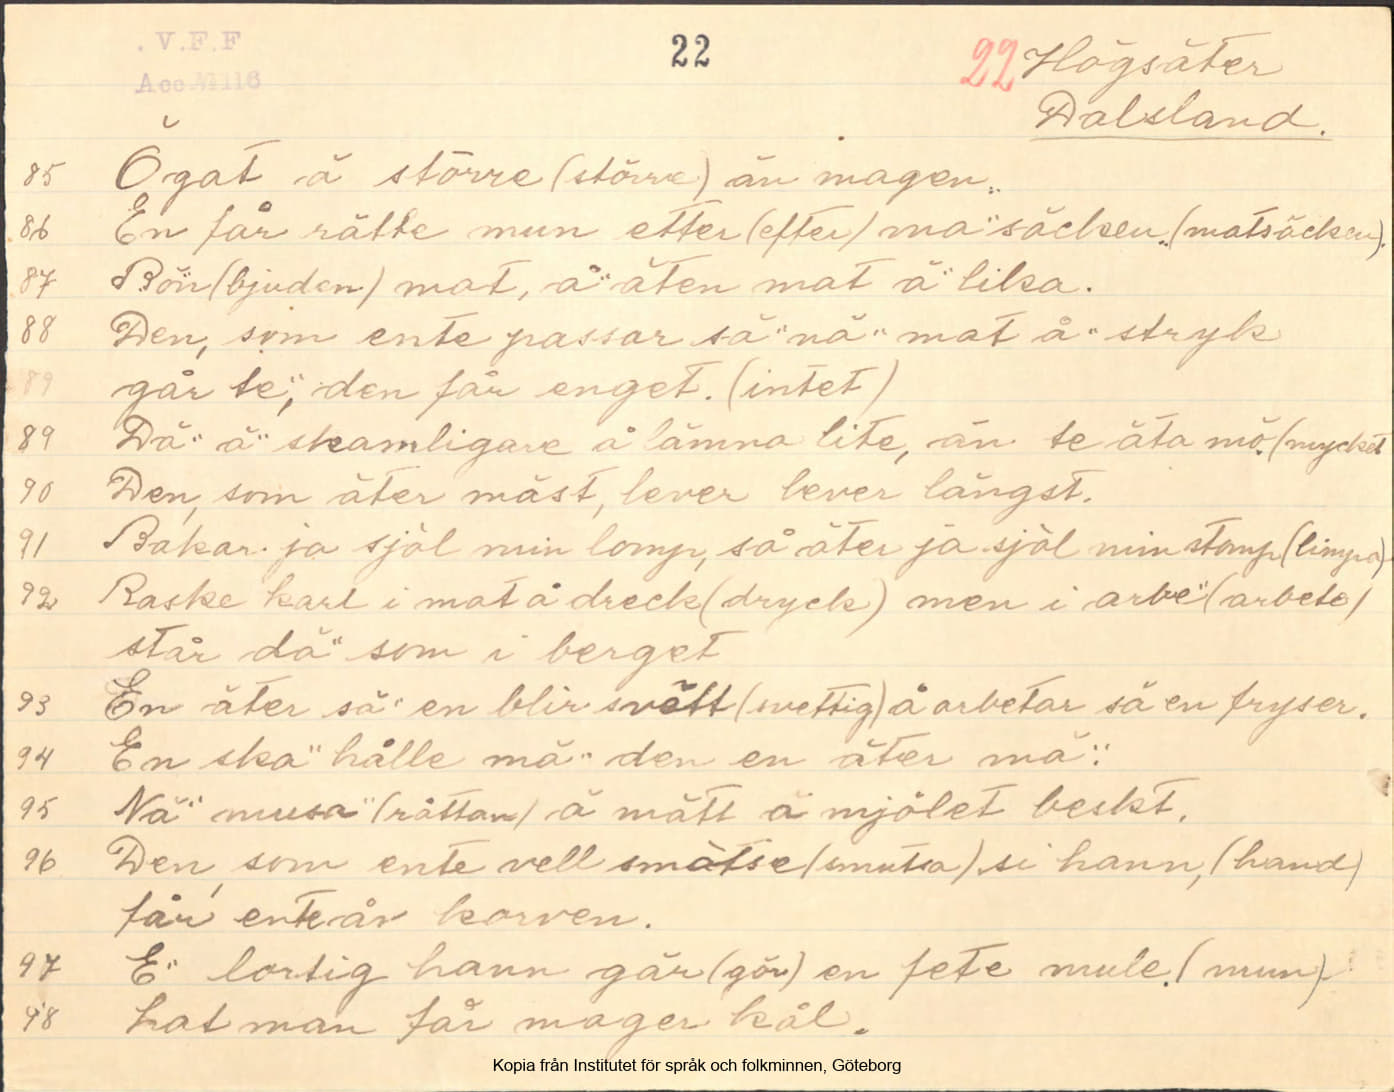 . V.F.F
22
22 Högsäter
Acc. № 116
Dalsland.
85 Ögat ä större (större) än magen.
86 En får rätte mun etter (efter) ma" säcken. (matsäcken).
87 Bön (bjuden) mat, å" äten mat ä" lika.
88 Den, som ente passar sä" nä" mat å" stryk
89 går te", den får enget. (intet)
89 Dä" ä" skamligare å lämna lite, än te äta mö. (mycket
90 Den, som äter mäst, lever lever längst.
91 Bakar ja själ min lomp, så äter ja själ min stomp (limpa)
92 Raske karl i mat å dreck (dryck) men i arbe" (arbete)
står dä" som i berget
93 En äter sä" en blir svétt (svettig) å arbetar sä en fryser.
94 En ska" hålle mä" den en äter mä".
95 Nä" musa" (råttan) ä mätt ä mjölet beskt.
96 Den, som ente vell smätse (smutsa) si hann, (hand)
får ente år korven.
97 E" lortig hann gär (gör) en fete mule. (mun)
98 Lat man får mager kål.
Kopia från Institutet för språk och folkminnen, Göteborg